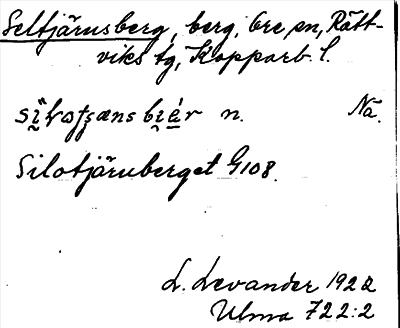 Seltjärnsberg, berg, Ore sn, Rätt-
viks tg, Kopparb. l.
n. Nä.
Silotjärnberget G108.
L. Levander 1922
Ulma 722:2